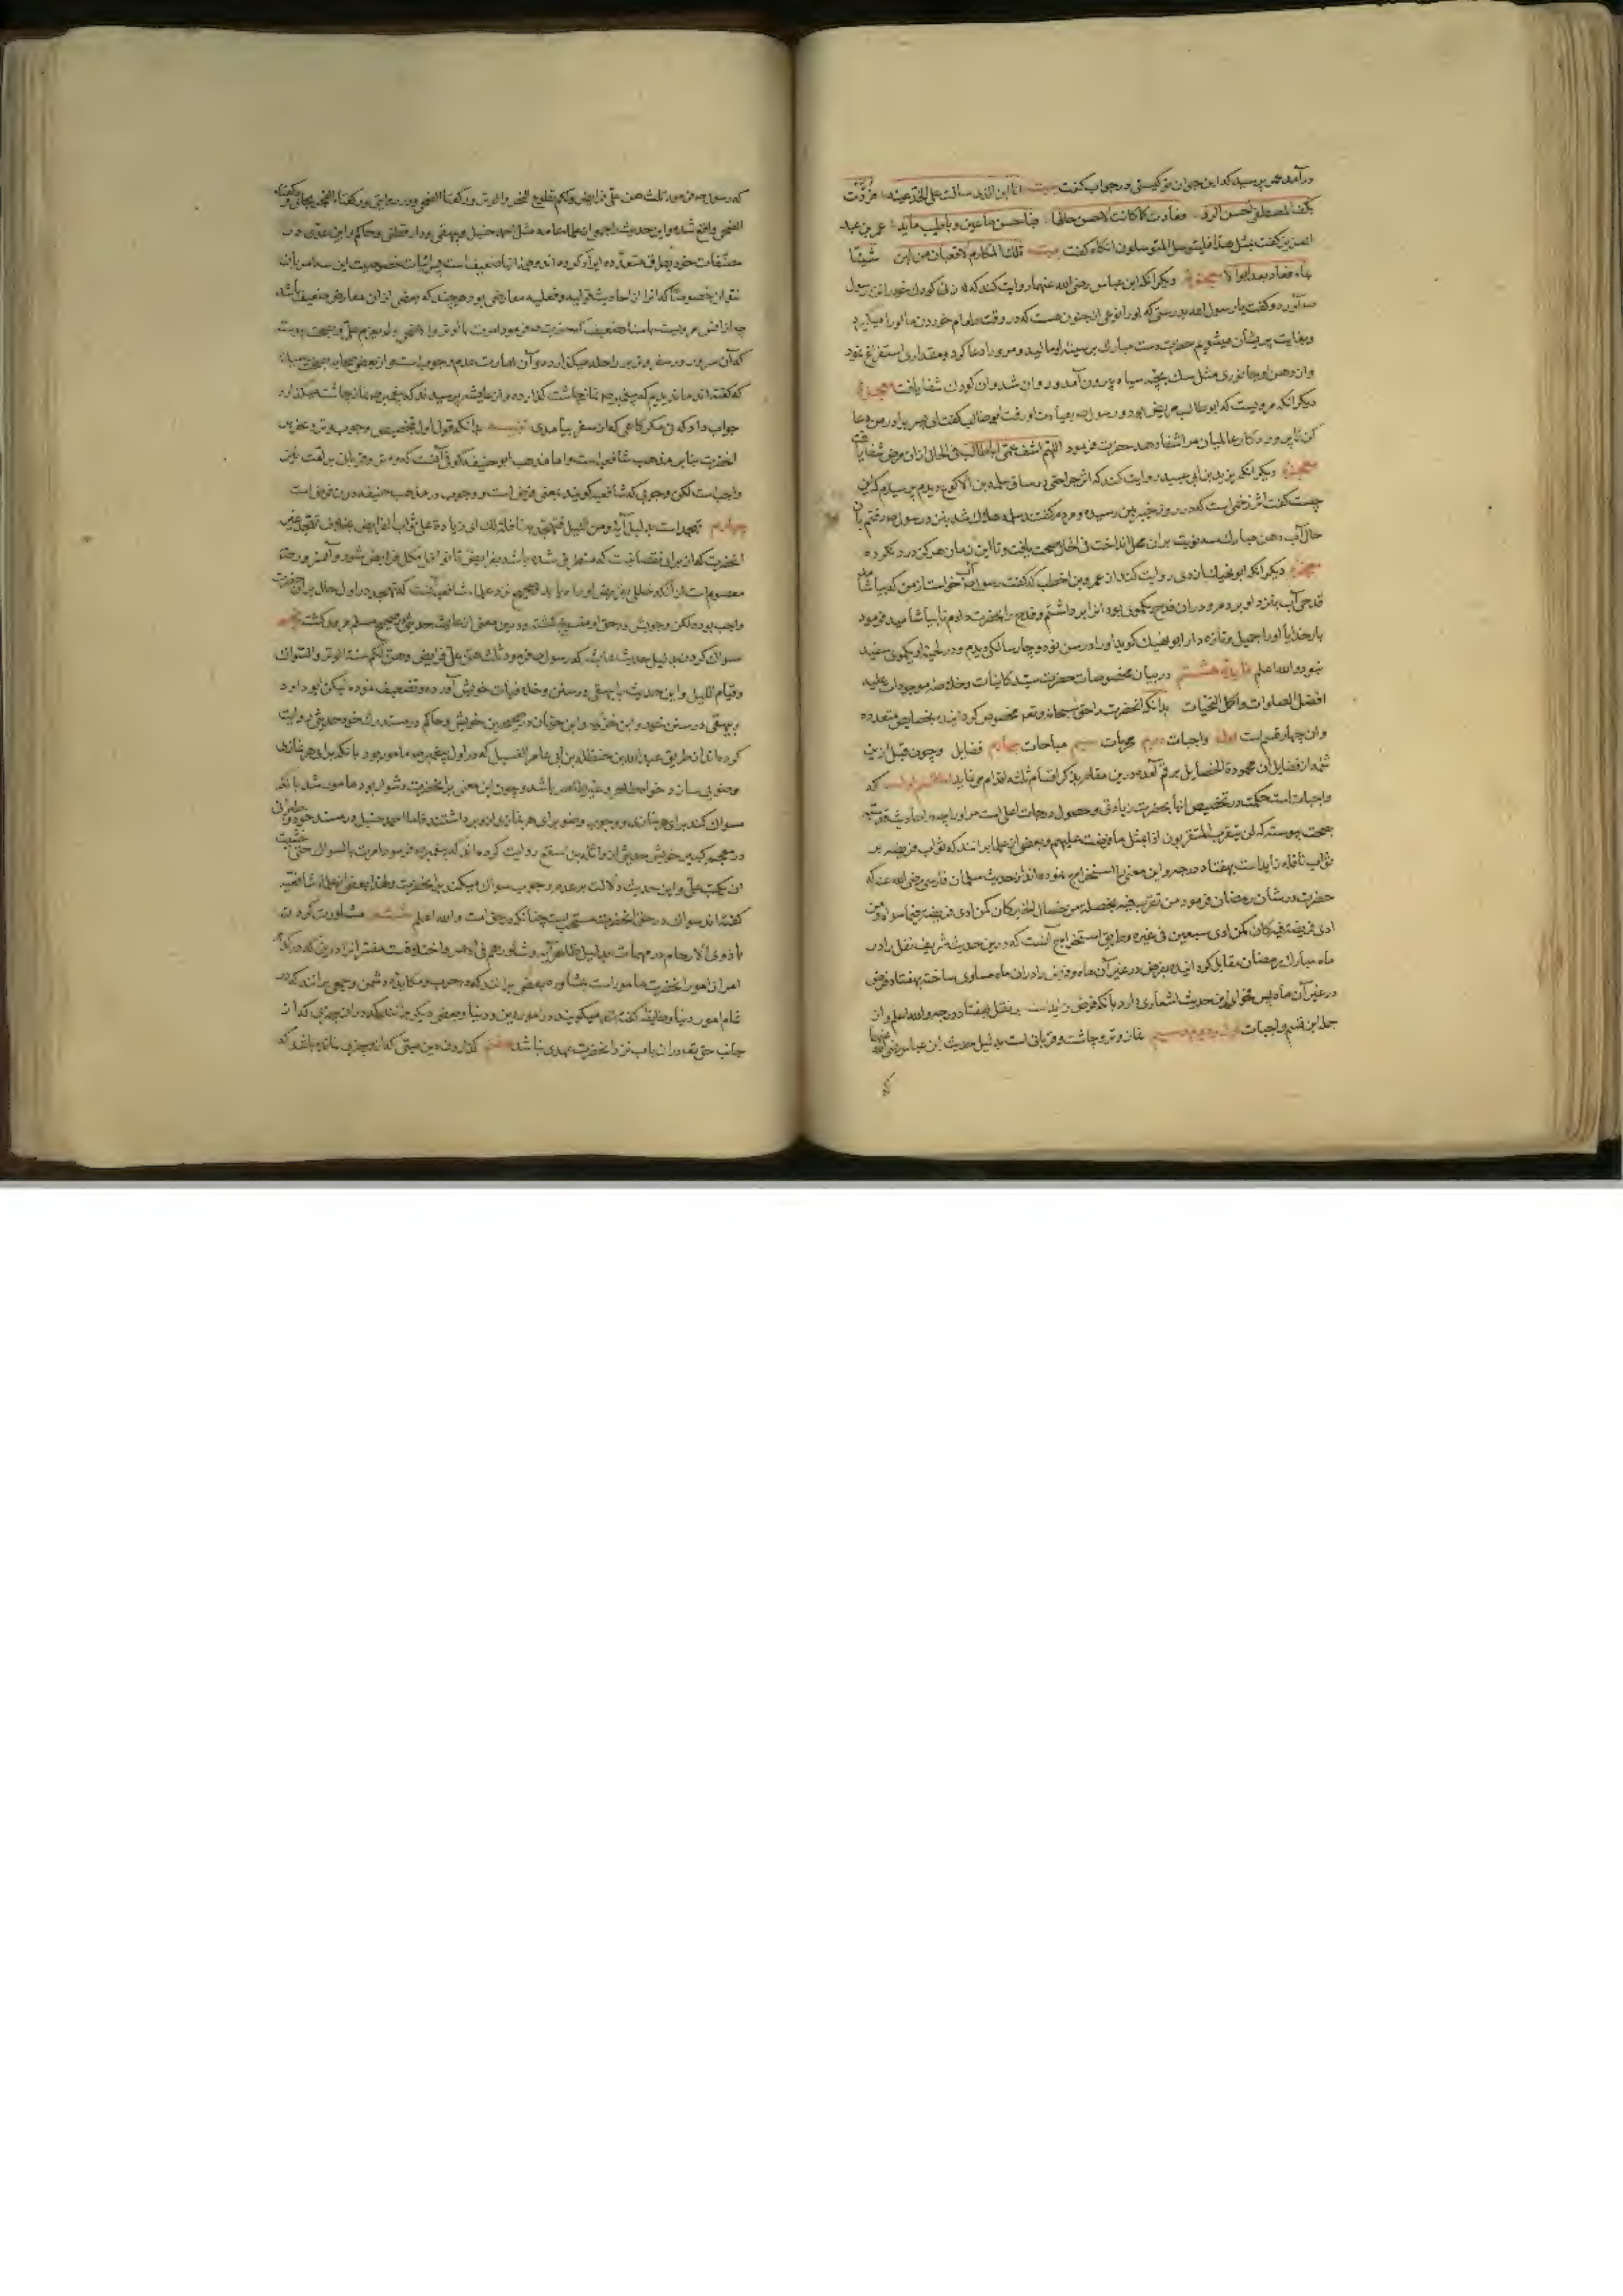 درآمد عمر پرسید که این جوان تو کیستی در جواب گفت بیت انا ابن الذی سالت علی الخد عینه فردت
بکف المصطفی احسن الرد فعادت کما کانت لاحسن حالها فیا حسن ما عین و یا طیب ما ید عمر بن عبد
العزیز گفت بمثل هذا فلیتوسل المتوسلون آنگاه گفت بیت تلک المکارم لا قعبان من لبن شیبا
بماء فعادا بعد ابوالا معجزه دیگر آنکه ابن عباس رضی الله عنهما روایت کند که زنی کودک خود را نزد رسول
آورد و گفت یا رسول الله بدرستی که او را نوعی از جنون هست که در وقت طعام خوردن ما او را میگیرد
و بغایت پریشان میشویم حضرت دست مبارک بر سینه او مالید و مر او را دعا کرد و مقداری استفراغ نمود
و از دهن او جانوری مثل سک بچه سیاه بیرون آمد و روان شد و آن کودک شفا یافت معجزه
دیگر آنکه مرویست که ابو طالب مریض بود و رسول بعیادت او رفت ابو طالب گفت ای پسر برادر من دعا
کن تا پروردکار عالمیان مرا شفا دهد حضرت فرمود اللهم اشف عمی ابا طالب فی الحال از آن مرض شفا یافت
معجزه دیگر آنکه یزید بن ابی عبید روایت کند که اثر جراحتی در ساق سلمه بن الاکوع دیدم پرسیدم که این
چیست گفت اثر زخمی است که در روز خیبر بمن رسیده و مردم گفتند سلمه هلاک شد نزد رسول رفتم
آب دهن مبارک سه نوبت بر آن محل انداخت فی الحال صحت یافت و تا این زمان هرگز درد نکرده
معجزه دیگر آنکه ابو نهیک ازدی روایت کند از عمرو بن اخطب که گفت رسول آب خواست از من که بیاشامد
قدحی آب نزد او بردم و در آن قدح یکموی بود آنرا برداشتم و قدح را بحضرت دادم تا بیاشامید فرمود
بارخدایا او را جمیل و تازه دار ابو نهیک کوید او را در سن نود و چهار سالکی دیدم و در لحیه او یکموی سفید
نبود والله اعلم فایده هشتم در بیان مخصوصات حضرت سید کاینات و خلاصه موجودات علیه
افضل الصلوات و اکمل التحیات بدانکه آنحضرت را حق سبحانه و تعالی مخصوص کردانیده بخصایص متعدده
و آن چهار قسم است اول واجبات دوم محرمات سیم مباحات چهارم فضایل و چون قبل ازین
شمه از فضایل آن محموده الخصایل برقم آمد درین مقام بذکر اقسام ثلثه اقدام می نماید اما قسم اول که
واجبات است حکمت در تخصیص آنها بحضرت زیادتی و حصول درجات اعلی است مر او را چه در احادیث قدسیه
بصحت پیوسته که لن یتقرب المتقربون الی بمثل ما افترضت علیهم و بعضی از علما برانند که ثواب فریضه بر
ثواب نافله زاید است بهفتاد درجه و این معنی را استخراج نموده اند از حدیث سلمان فارسی رضی الله عنه که
حضرت در شان رمضان فرمود من تقرب فیه بخصلة من خصال الخیر کان کمن ادی فریضة فیما سواه و من
ادی فریضة فیه کان کمن ادی سبعین فی غیره و طریق استخراج آنست که درین حدیث شریف نفل را در
ماه مبارک رمضان مقابل کردانیده بفرض در غیر آن ماه و فرض را در آن ماه مساوی ساخته بهفتاد فرض
در غیر آن ماه پس فحوای این حدیث اشعاری دارد بآنکه فرض زاید است بر نفل بهفتاد درجه والله اعلم و از
جمله این قسم واجبات اول و دوم و سیم نماز وتر و چاشت و قربانی است بدلیل حدیث ابن عباس رضی الله عنهما
که
که رسول فرمود ثلث هن علی فرایض و لکم تطوع النحر و الوتر و رکعتا الضحی و در روایتی و رکعتا الفجر بجای رکعتا
الضحی واقع شده و این حدیث را جمعی از علما مثل احمد حنبل و بیهقی و دار قطنی و حاکم و ابن عدی در
مصنفات خود بطرق متعدده ایراد کرده اند و همه آنها ضعیف است پس اثبات خصوصیت این سه امر بآن
نتوان خصوصا که آنرا از احادیث قولیه و فعلیه معارضی بود هرچند که بعضی از آن معارض ضعیف باشد
چه از انس مرویست باسناد ضعیف که حضرت فرمود امرت بالوتر و الاضحی و لم یعزم علی و بصحت پیوسته
که آن سرور در سفر وتر بر راحله میکزارد و آن امارت عدم وجوب است و از بعضی صحابه بصحت رسیده
که گفته اند ما ندیدیم که پیغمبر نماز چاشت کذارده و از عایشه پرسیدند که پیغمبر نماز چاشت میکذارد
جواب داد که نی مکر کاهی که از سفر بیامدی تنبیه بدانکه قول اول بتخصیص وجوب وتر و نحر بر
آنحضرت بنابر مذهب شافعی است و اما مذهب ابو حنیفه کوفی آنست که وتر و قربانی بر امت نیز
واجب است لکن وجوبی که شافعیه کویند بمعنی فرض است و وجوب در مذهب حنفیه دون فرض است
چهارم تهجد است بدلیل آیه و من اللیل فتهجد به نافلة لک ای زیادة علی ثواب الفرایض بخلاف تهجد غیر
آنحضرت که از برای نقصانیست که متطرق شده باشد بفرایض تا نوافل مکمل فرایض شود و آنسرور
معصوم است از آنکه خللی بفرایض او راه یابد و صحیح نزد علماء شافعیه آنست که تهجد در اول حال بر آنحضرت
واجب بوده لکن وجوبش در حق او منسوخ کشته و درین معنی از عایشه حدیثی در صحیح مسلم مروی کشته پنجم
سواک کردن بدلیل حدیث عایشه که رسول فرمود ثلث هن علی فرایض و هن لکم سنة الوتر و السواک
و قیام اللیل و این حدیث را بیهقی در سنن و خلافیات خویش آورده و تضعیف نموده لیکن ابو داود
و بیهقی در سنن خود و ابن خزیمه و ابن حبان در صحیح خویش و حاکم در مستدرک خود حدیثی روایت
کرده اند از طریق عبدالله بن حنظله بن ابی عامر الغسیل که در اول پیغمبر مامور بود بآنکه برای هر نمازی
وضویی سازد خواه طاهر و خواه غیر طاهر باشد و چون این معنی بر آنحضرت دشوار بود مامور شد بآنکه
سواک کند برای هر نماز و وجوب وضو برای هر نمازی از وی برداشتند و امام احمد حنبل در مسند خود و طبرانی
در معجم کبیر خویش حدیثی از واثله بن اسقع روایت کرده اند که پیغمبر فرمود امرت بالسواک حتی خشیت
ان یکتب علی و این حدیث دلالت بر عدم وجوب سواک میکند بر آنحضرت و لهذا بعضی از علماء شافعیه
گفته اند سواک در حق آنحضرت مستحب است چنانکه در حق امت والله اعلم ششم مشاورت کردن
با ذوی الارحام در مهمات بدلیل ظاهر آیه و شاورهم فی الامر و اختلافست مفسرانرا درین که در کدام
امر از امور آنحضرت مامور است بمشاوره بعضی برانند که در حرب و مکایده دشمن و جمعی برانند که در
تمام امور دنیا و طایفه گفته اند میکویند در امور دین و دنیا و بعضی دیکر برانند که در آن چیزی که از
جانب حق تعالی در آن باب نزد آنحضرت عهدی نباشد هفتم کذاردن دین میتی که از و چیزی نمانده باشد که